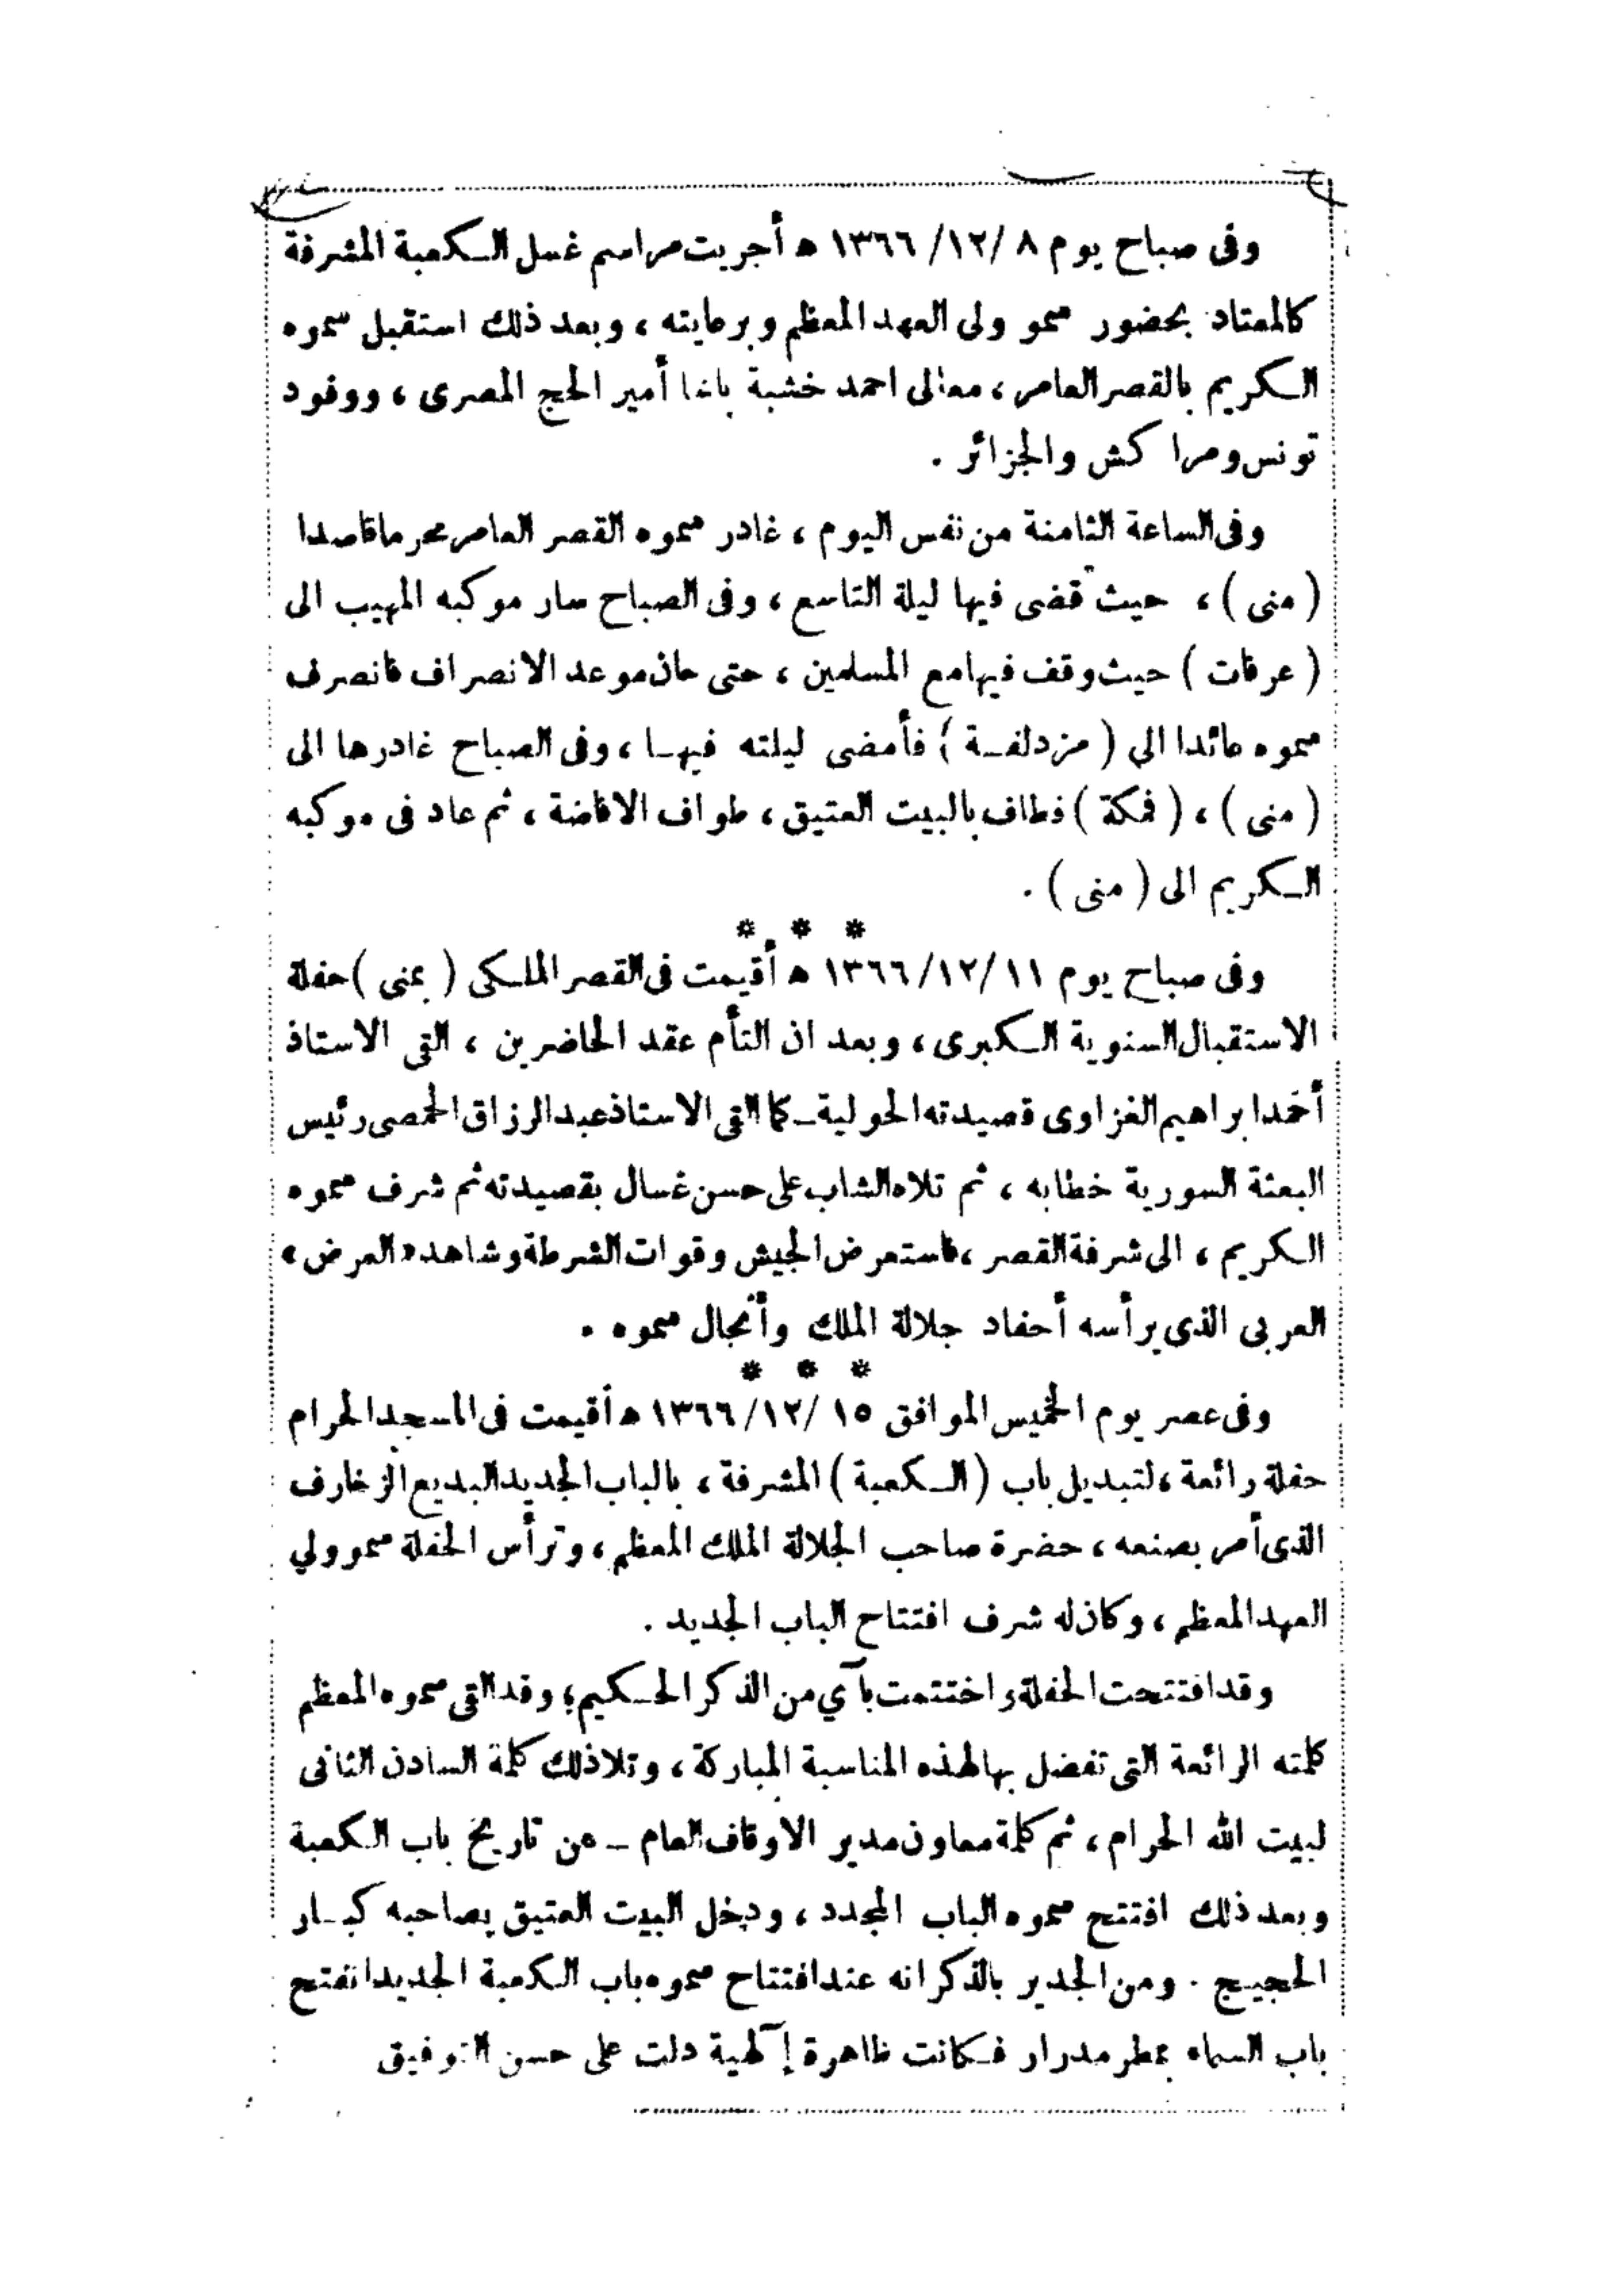 وفى صباح يوم ٨ /١٢/ ١٣٦٦ ه أجريت مراسم غسل الكعبة المشرفة
كالمعتاد بحضور سمو ولى العهد المعظم وبرعايته ، وبعد ذلك استقبل سموه
الكريم بالقصر العامر ، معالى احمد خشبة باشا أمير الحج المصرى ، ووفود
تونس ومراكش والجزائر .
وفى الساعة الثامنة من نفس اليوم ، غادر سموه القصر العامر محرما قاصدا
( منى ) ، حيث قضى فيها ليلة التاسع ، وفى الصباح سار موكبه المهيب الى
( عرفات ) حيث وقف فيها مع المسلمين ، حتى حان موعد الانصراف فانصرف
سموه عائدا الى ( مزدلفة ) فأمضى ليلته فيها ، وفى الصباح غادرها الى
( منى ) ، ( فمكة ) فطاف بالبيت العتيق ، طواف الافاضة ، ثم عاد فى موكبه
الكريم الى ( منى ) .
* * *
وفى صباح يوم ١١ /١٢/ ١٣٦٦ ه أقيمت فى القصر الملكى ( بمنى ) حفلة
الاستقبال السنوية الكبرى ، وبعد ان التأم عقد الحاضرين ، القى الاستاذ
أحمد ابراهيم الغزاوى قصيدته الحولية ـ كما القى الاستاذ عبد الرزاق الحمصى رئيس
البعثة السورية خطابه ، ثم تلاه الشاب على حسن غسال بقصيدته ثم شرف سموه
الكريم ، الى شرفة القصر ، فاستعرض الجيش وقوات الشرطة وشاهد « العرض »
العربى الذى يرأسه أحفاد جلالة الملك وأنجال سموه .
* * *
وفى عصر يوم الخميس الموافق ١٥ /١٢/ ١٣٦٦ ه أقيمت فى المسجد الحرام
حفلة رائعة ، لتبديل باب ( الكعبة ) المشرفة ، بالباب الجديد البديع الزخارف
الذى أمر بصنعه ، حضرة صاحب الجلالة الملك المعظم ، وترأس الحفلة سمو ولي
العهد المعظم ، وكان له شرف افتتاح الباب الجديد .
وقد افتتحت الحفلة واختتمت بآي من الذكر الحكيم ؛ وقد القى سموه المعظم
كلمته الرائعة التى تفضل بها لهذه المناسبة المباركة ، وتلا ذلك كلمة السادن الثانى
لبيت الله الحرام ، ثم كلمة معاون مدير الاوقاف العام ـ عن تاريخ باب الكعبة
وبعد ذلك افتتح سموه الباب المجدد ، ودخل البيت العتيق بصاحبه كبار
الحجيج . ومن الجدير بالذكر انه عند افتتاح سموه باب الكعبة الجديد انفتح
باب السماء بمطر مدرار فكانت ظاهرة إلهية دلت على حسن التوفيق